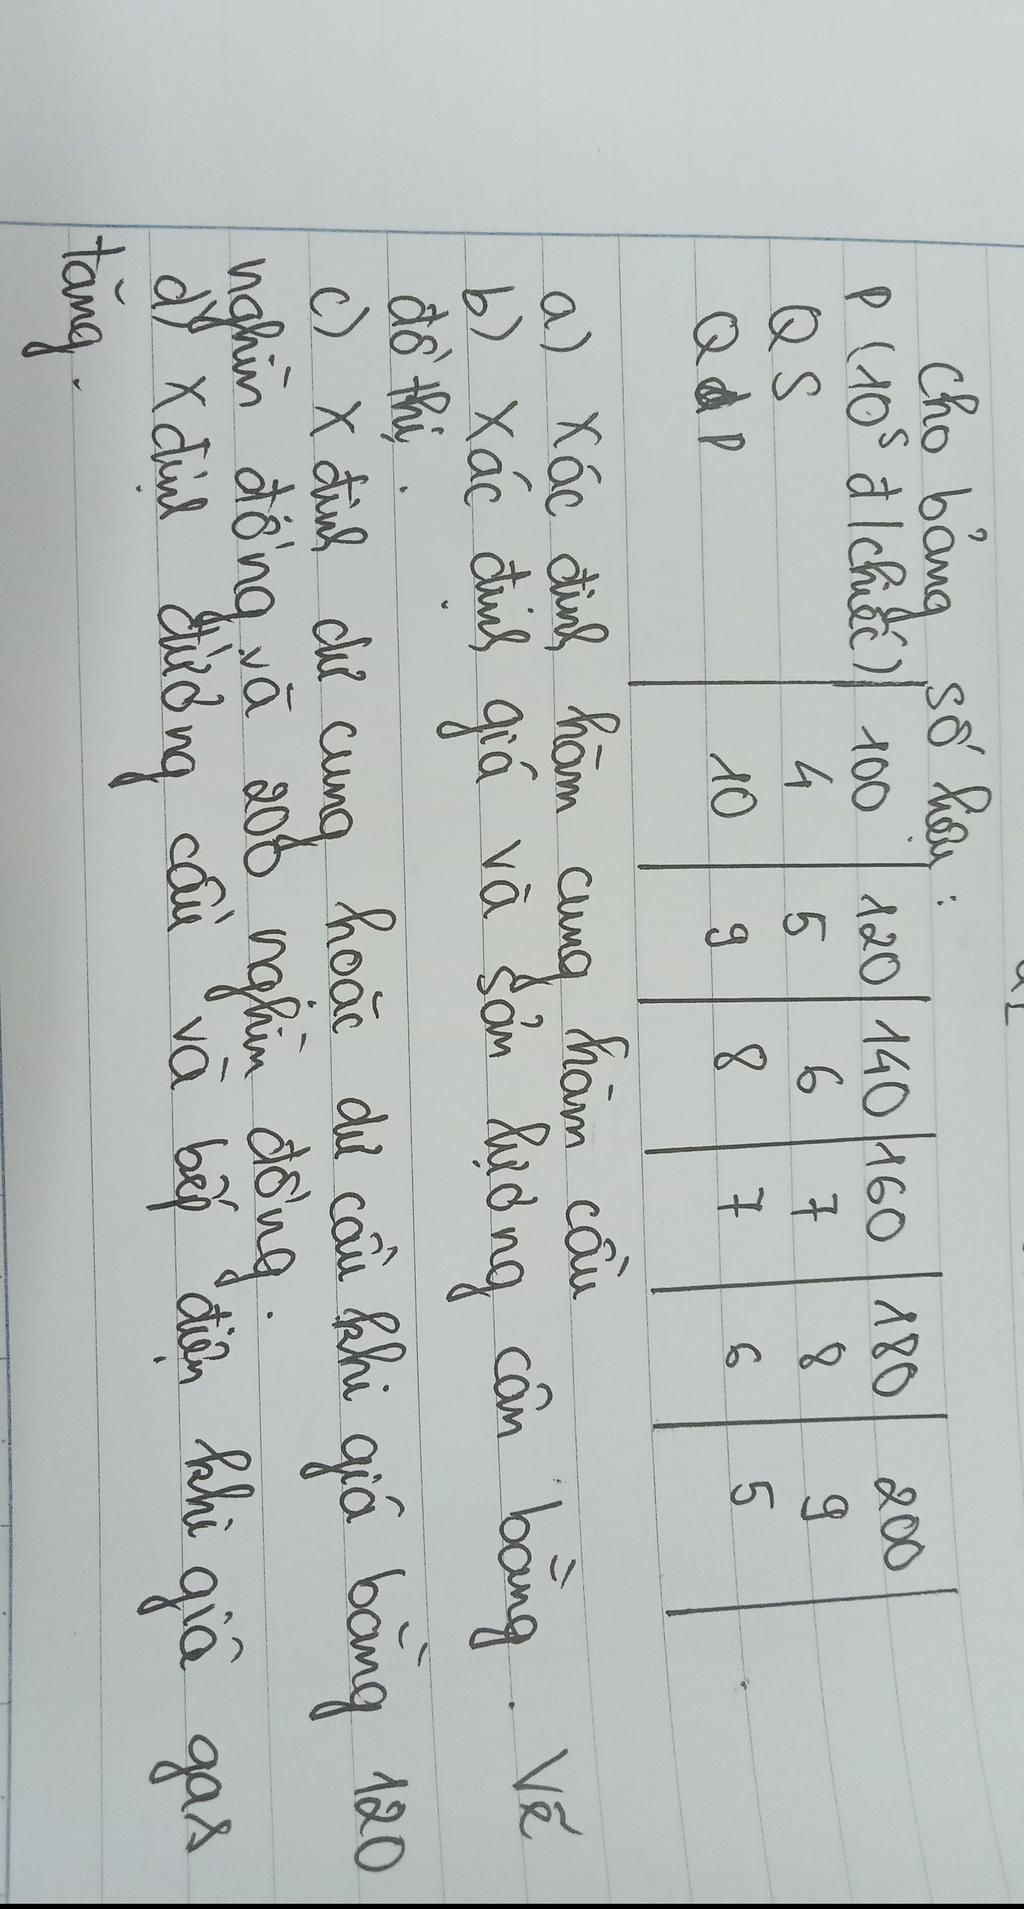 Cho bảng số liệu :
P (10⁵ đ/chiếc) 100 120 140 160 180 200
QS 4 5 6 7 8 9
QdP 10 9 8 7 6 5
a) Xác định hàm cung hàm cầu
b) Xác định giá và sản lượng cân bằng. Vẽ
đồ thị.
c) X định dư cung hoặc dư cầu khi giá bằng 120
nghìn đồng và 200 nghìn đồng.
d) X định đường cầu về bếp điện khi giá gas
tăng.